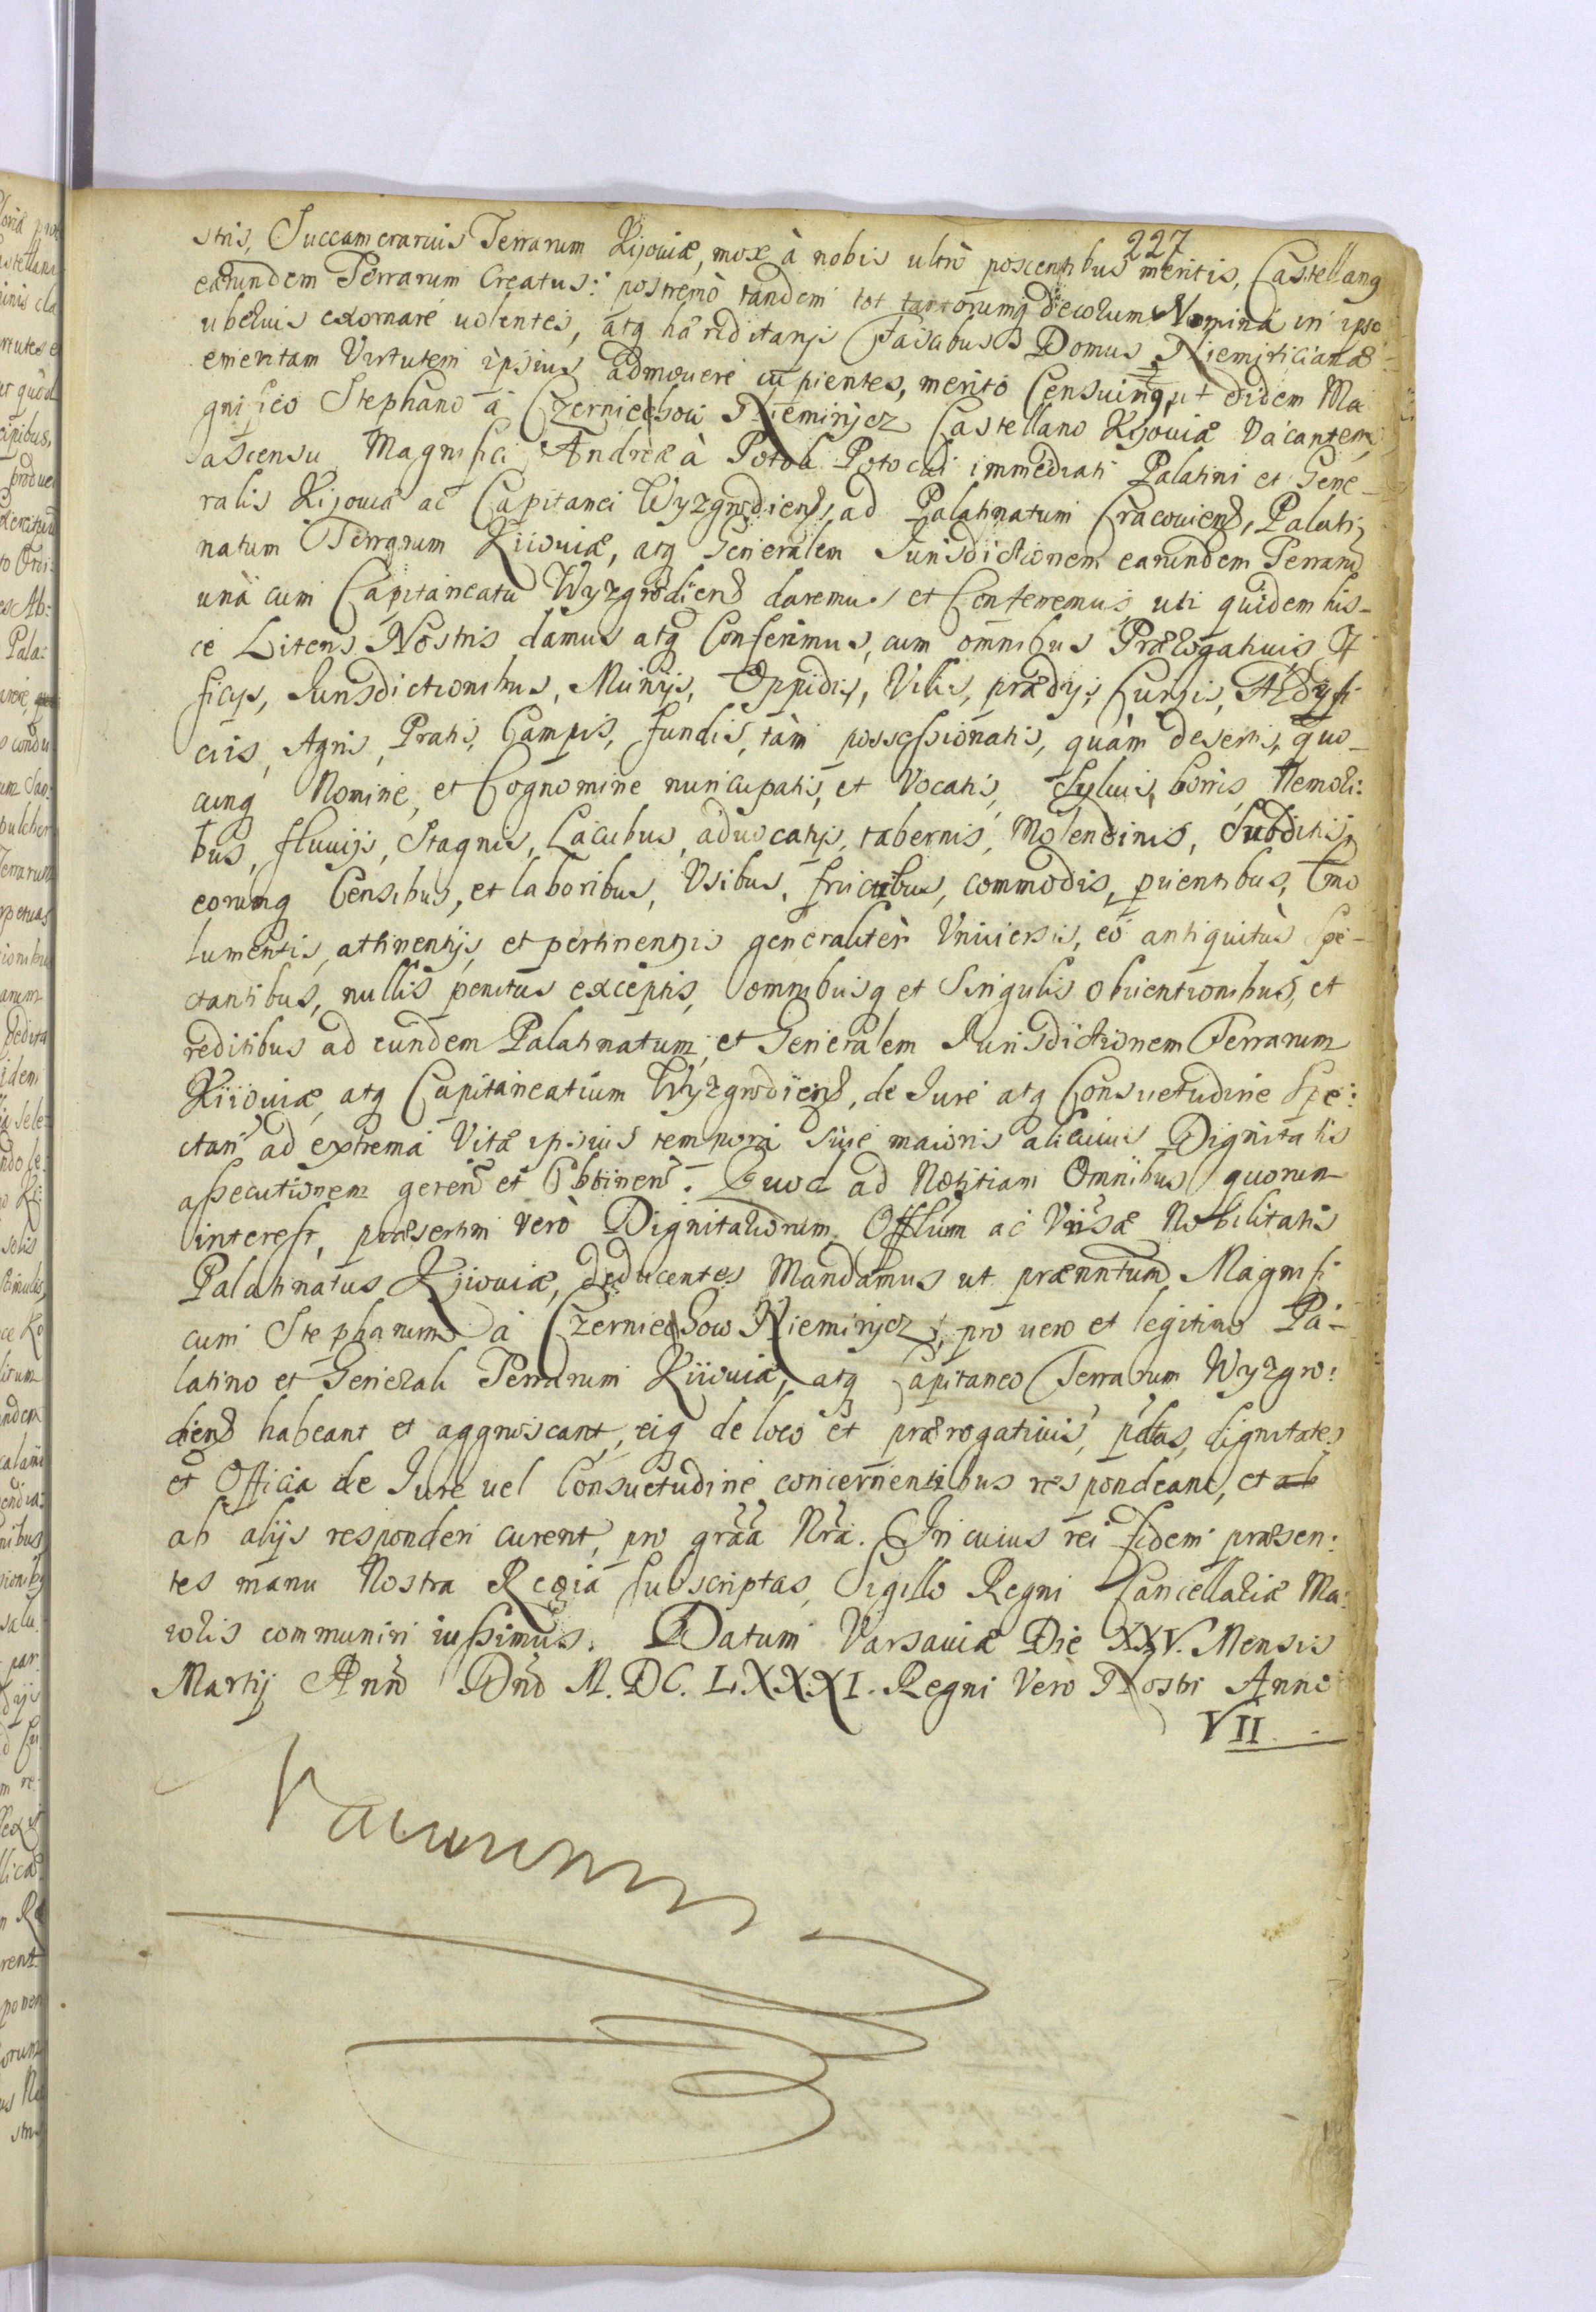 227
stris, Succamerarius Terrarum Kijouiæ, mox à nobis ultrò poscentibus meritis, Castellanq
earundem Terrarum Creatus: postremò tandem tot tantorumq decorum Nomina in ipso
uberius exornare uolentes, atq hæreditarijs Fascibus Domus Niemiricianæ
emeritam Virtutem ipsius admouere cupientes, merito Censuimq, ut eidem Ma
gnifico Stephano à Czerniechow Niemirycz Castellano Kijouiæ Vacantem,
ascensu Magnifici Andreæ à Potok Potocki immediati Palatini et Gene-
ralis Kijouiæ ac Capitanei Wyzgrodiens, ad Palatinatum Cracouiens, Palati-
natum Terrarum Kiiouiæ, atq Generalem Jurisdictionem earundem Terrarum
unà cum Capitaneatu Wyzgrodiens daremus et Conferemus, uti quidem his-
ce Literis Nostris damus atq Conferimus, cum omnibus Prærogatiuis Of
ficijs, Jurisdictionibus, Munijs, Oppidis, Villis, prædijs, Curijs, Ædyfi
ciis, Agris, Pratis, Campis, fundis, tàm possessionatis, quàm desertis, quo-
cunq Nomine, et Cognomine nuncupatis, et Vocatis, Syluis, borris, Nemori:
bus, fluuijs, Stagnis, Lacubus, aduocatijs, tabernis, Molendinis, Subditis,
eorumq Censibus, et laboribus, Vsibus, fructibus, commodis, prouentibus, Emo
lumentis, attinentijs, et pertinentijs generalitèr Vniuersis, eò antiquitùs Spe-
ctantibus, nullis penitus exceptis, omnibusq et Singulis obuentionibus, et
reditibus ad eundem Palatinatum, et Generalem Jurisdictionem Terrarum
Kiiouiæ, atq Capitaneatum Wyzgrodiens, de Jure atq Consuetudine Spe:
ctan ad extrema Vitæ ipsius tempora siue maioris alicuius Dignitatis
assecutionem geren et Obtinen. Quod ad Notitiam Omnibus quorum
interest, præsertim verò Dignitariorum, Offlium ac Vnsæ Nobilitatis
Palatinatus Kijouiæ, deducentes Mandamus ut prænntum Magnifi
cum Stephanum à Czerniechow Niemirycz, pro uero et legitimo Pa-
latino et Generali Terrarum Kiiouiæ, atq Capitaneo Terrarum Wyzgro:
diens habeant et aggnoscant, eiq de loco et prærogatiuis, pdtas, dignitates
et Officia de Jure uel Consuetudine concernentibus respondeant, et ab
ab alijs responderi curent, pro graa Nra. In cuius rei fidem præsen:
tes manu Nostra Regia subscriptas, Sigillo Regni Cancellariæ Ma:
ioris communiri iussimus. Datum Varsauiæ Die XXV. Mensis
Martij Anno Dno M. DC. LXXXI. Regni Vero Nostri Anno
VII